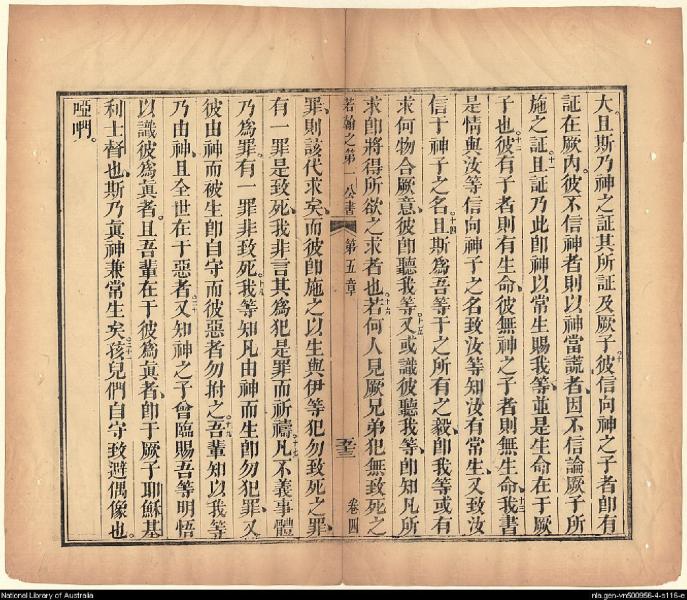 大且斯乃神之証其所証及厥子彼信向神之子者卽有
証在厥內彼不信神者則以神當謊者因不信論厥子所
施之証且証乃此卽神以常生賜我等並是生命在于厥
子也彼有子者則有生命彼無神之子者則無生命我書
是情與汝等信向神子之名致汝等知汝有常生又致汝
信于神子之名且斯爲吾等于之所有之毅卽我等或有
求何物合厥意彼卽聽我等又或識彼聽我等卽知凡所
求卽將得所欲之求者也若何人見厥兄弟犯無致死之
若翰之第一公書 第五章 卷四
罪則該代求矣而彼卽施之以生與伊等犯勿致死之罪
有一罪是致死我非言其爲犯是罪而祈禱凡不義事體
乃爲罪有一罪非致死我等知凡由神而生卽勿犯罪又
彼由神而被生卽自守而彼惡者勿拊之吾輩知以我等
乃由神且全世在于惡者又知神之子曾臨賜吾等明悟
以識彼爲眞者且吾輩在于彼爲眞者卽于厥子耶穌基
利士督也斯乃眞神兼常生矣孩兒們自守致避偶像也
啞們
National Library of Australia
nla.gen-vn500956-4-s116-e